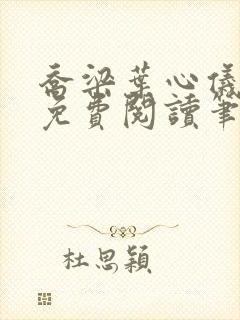 喬梁葉心儀
免費閱讀筆
杜思穎